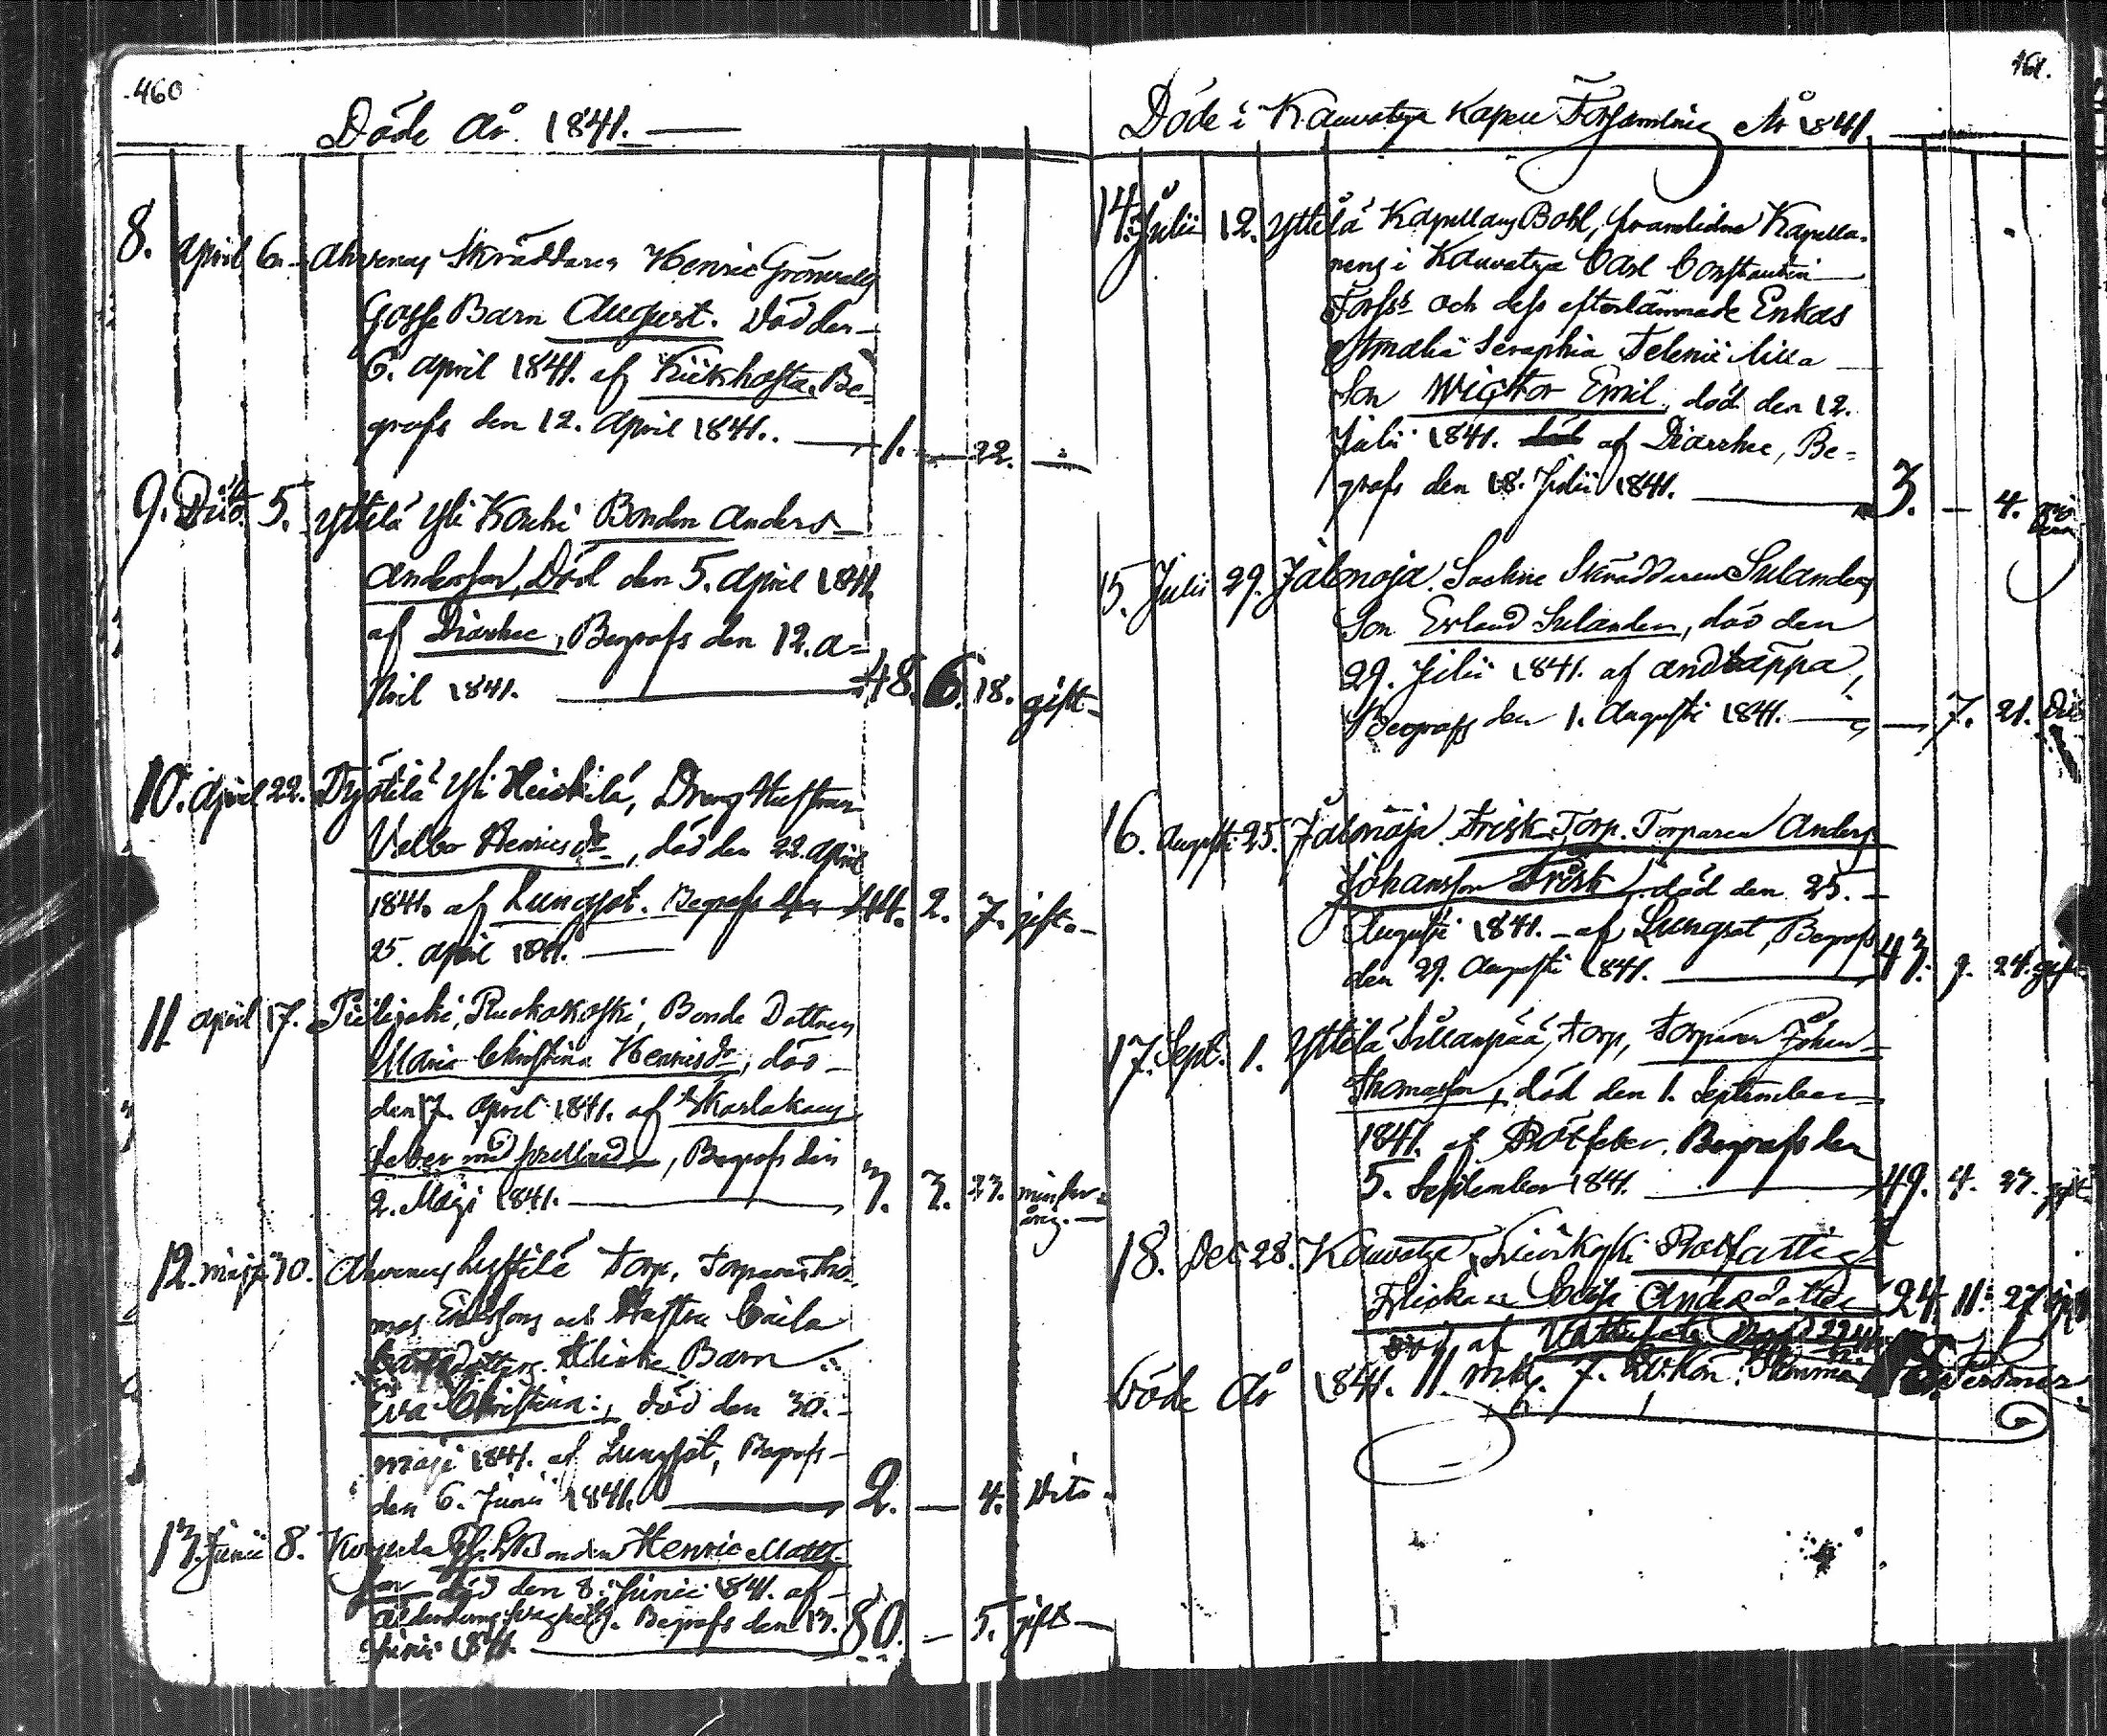 460
Döde år 1841.
8. April 6. Ahvenus Skräddaren Henric Grönvalls
Gosse Barn August. Död den
6. April 1841. af Kikhosta. Be-
grafs den 12. April 1841. 1. — 22. —
9. Dito 5. Yttilä Yli Kouhi Bonden Anders
Andersson, Död den 5. April 1841
af Diarhee, Begrafs den 12. A-
pril 1841. 48. 6. 18. gift
10. April 22. Yli Heiskilä, Dräng Hustrun
Valbor Henricsdr, död den 22. April
1841. af Lungsot. Begrafs den 44. 2. 7. gift.
25. April 1841.
11 April 17. Piilijoki, Ruokakoski, Bonde Dottren
Maria Christina Henricsdr, död
den 17. April 1841. af Skarlakans
feber med, Begrafs den
2. Maji 1841. 7. 7. 23. minder-
årig.
12. Maji 30. Ahvenus Torp, Torparen Tho-
mas Erikssons och Hustru Caisa
dotters Flicke Barn
Eva Christina, död den 30.
Maji 1841. af Lungsot, Begrafs
den 6. Junii 1841. 2. — 4. Dito
13. Junii 8. Bonden Henric Matts-
son död den 8. Junii 1841. af
Begrafs den 13.
Junii 1841. 80. — 5. gift
461.
Döde i Kauvatsa Kapell Församling År 1841.
14. Julii 12. Yttilä Kapellans Bohl, framlidne Kapella-
nens i Kauvatsa Carl Constantin
och dess efterlämnade Enkas
Amalia Seraphia Telenii lilla
Son Wictor Emil, död den 12.
Julii 1841. död af Diarrhee, Be-
grafs den 18. Julii 1841. 3. — 4.
15. Julii 29. Jalonoja Skräddaren Sulanders
Son Erland Sulander, död den
29. Julii 1841. af andtäppa,
Begrafs den 1. Augusti 1841. — 7. 21. Dito
16. Augusti 25. Jalonoja Frisk Torp. Torparen Anders
Johansson Frisk, död den 25.
Augusti 1841. af Lungsot, Begrafs
den 29. Augusti 1841. 43. 9. 24. gift
17. Sept. 1. Yttilä Sillanpää Torp, Torparen Johan
Thomasson, död den 1. September
1841. af Rötfeber. Begrafs den
5. September 1841. 49. 4. 27. gift
18. Dec. 28. Kauvatsa, Rotfattig
Flickan Caisa Andersdotter 24. 11. 27
död af
Döde år 1841. 11 mk. 7. Qv.kön. Summa 18. Personer.